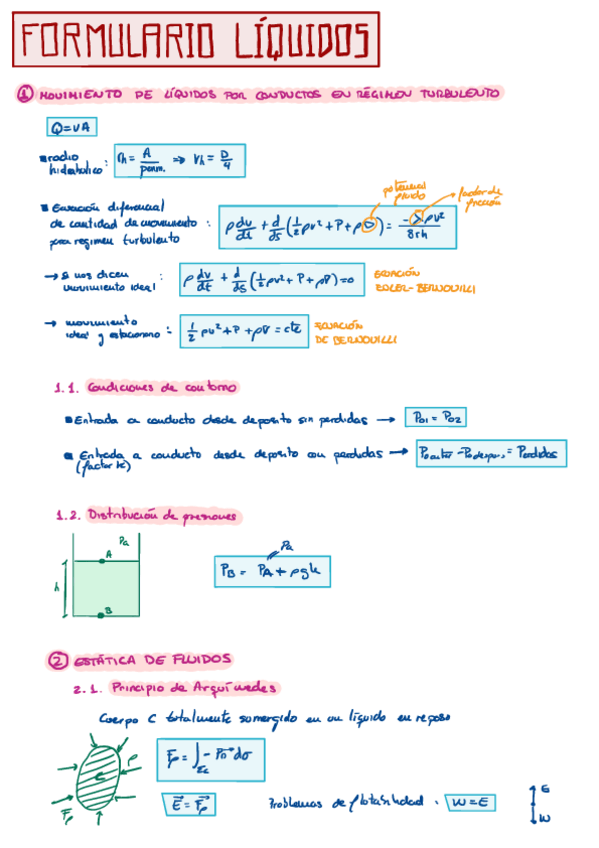 FORMULARIO LÍQUIDOS
① MOVIMIENTO DE LÍQUIDOS POR CONDUCTOS EN RÉGIMEN TURBULENTO
Q=vA
radio hidráulico : rh = A / perm. ⇒ rh = D/4
potencial fluido
factor de fricción
Ecuación diferencial
de cantidad de movimiento :
para regimen turbulento
ρ dv/dt + d/ds (1/2 ρv² + P + ρU) = -λρv² / 8rh
→ si nos dicen : movimiento ideal
ρ dv/dt + d/ds (1/2 ρv² + P + ρU) = 0
ECUACIÓN
EULER-BERNOUILLI
→ movimiento ideal y estacionario :
1/2 ρv² + P + ρU = cte
ECUACIÓN
DE BERNOUILLI
1.1. Condiciones de contorno
Entrada a conducto desde deposito sin perdidas → P01 = P02
Entrada a conducto desde deposito con perdidas →
(factor k)
1.2. Distribución de presiones
Pa
A
h
B
Pa
PB = PA + ρgh
② ESTÁTICA DE FLUIDOS
2.1. Principio de Arquímedes
Cuerpo C totalmente sumergido en un líquido en reposo
C
Fp
E = Fp
Problemas de flotabilidad : W = E
E
W